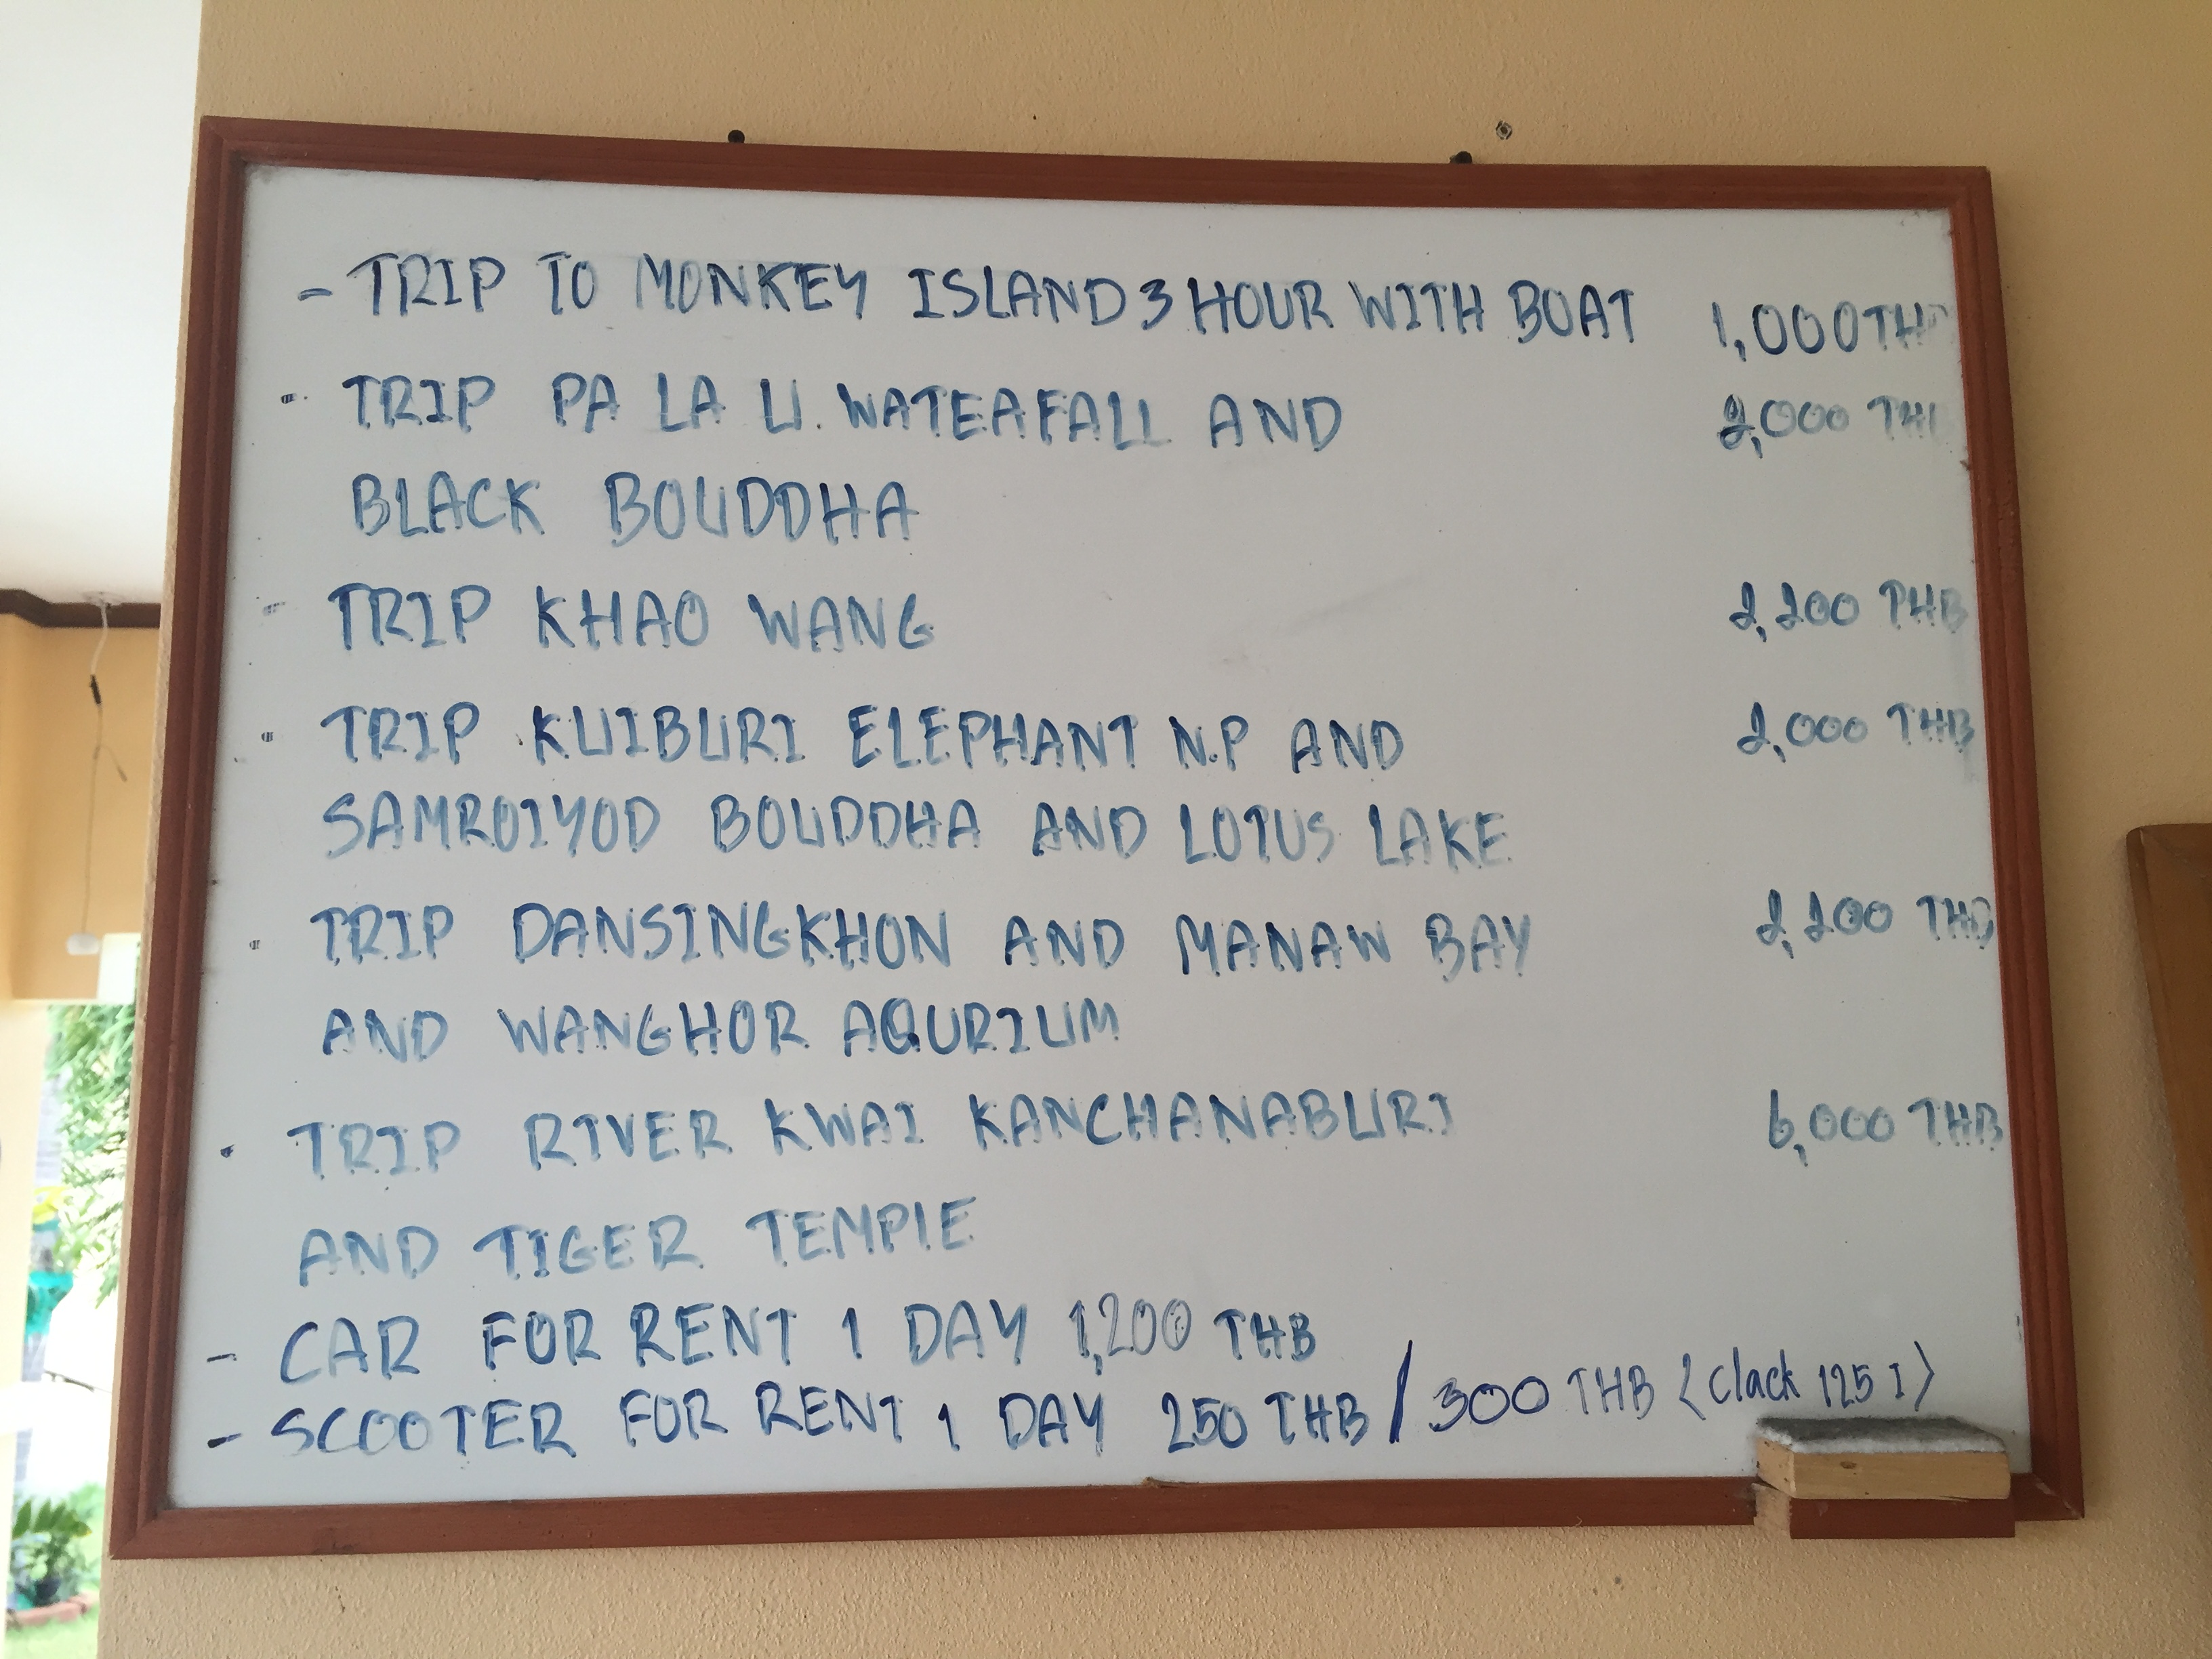 - TRIP TO MONKEY ISLAND 3 HOUR WITH BOAT 1,000 TH
- TRIP PA LA U. WATEAFALL AND 2,000 TH
BLACK BOUDDHA
- TRIP KHAO WANG 2,200 THB
- TRIP KUIBURI ELEPHANT N.P AND 2,000 THB
SAMROIYOD BOUDDHA AND LOTUS LAKE
- TRIP DANSINGKHON AND MANAW BAY 2,200 THB
AND WANGHOR AQURIUM
- TRIP RIVER KWAI KANCHANABURI 6,000 THB
AND TIGER TEMPLE
- CAR FOR RENT 1 DAY 1,200 THB
- SCOOTER FOR RENT 1 DAY 250 THB / 300 THB (Clack 125 I)